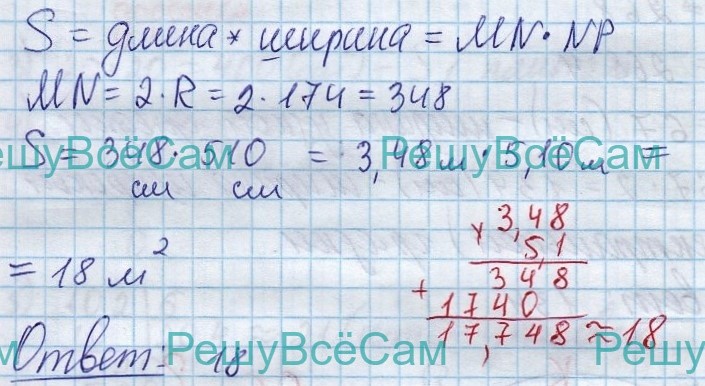 S = длина * ширина = MN · NP
MN = 2 · R = 2 · 174 = 348
S = 348 · 510 = 3,48 м · 5,10 м =
см см
РешуВсёСам РешуВсёСам
= 18 м²
× 3,48
5,1
348
+ 1740
17,748 ≈ 18
Ответ: 18
РешуВсёСам РешуВсёСам